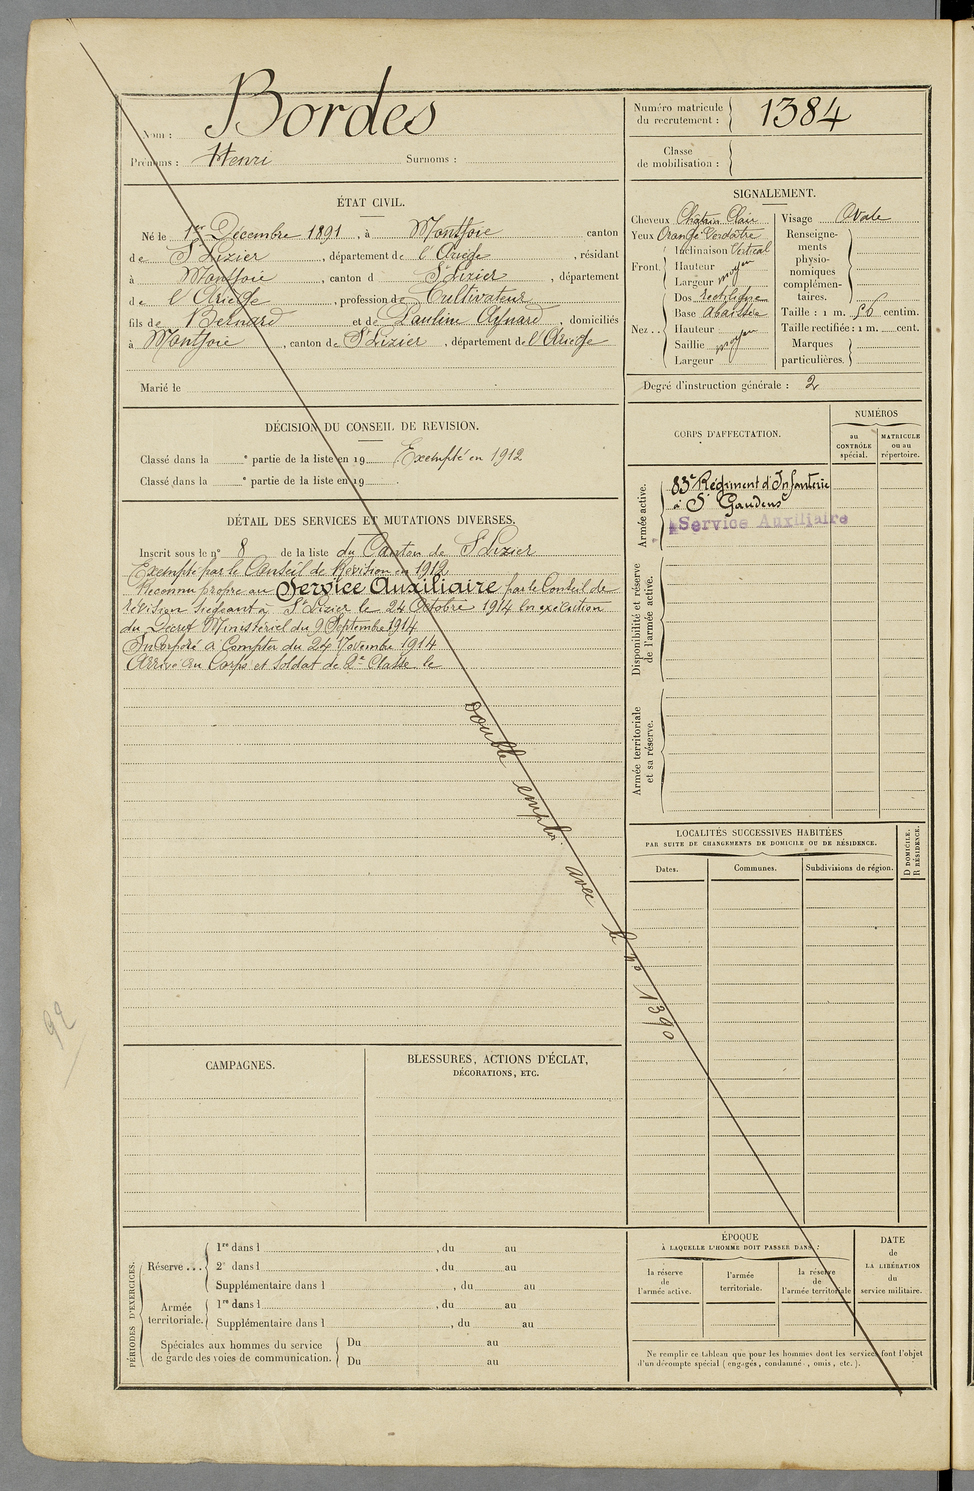 Nom : Bordes
Prénoms : Henri Surnoms :
Numéro matricule du recrutement : 1384
Classe de mobilisation :
ÉTAT CIVIL.
Né le 1er Décembre 1891, à Montjoie canton
de St Lizier, département de l'Ariège, résidant
à Montjoie, canton d St Lizier, département
de l'Ariège, profession de Cultivateur
fils de Bernard et de Pauline Aynard, domiciliés
à Montjoie, canton de St Lizier, département de l'Ariège
Marié le
SIGNALEMENT.
Cheveux Châtain Clair
Yeux Orangé Verdâtre
Front. Inclinaison Vertical
Hauteur moyen
Largeur
Nez .. Dos rectiligne
Base abaissée
Hauteur moyen
Saillie
Largeur
Visage Ovale
Renseigne-
ments
physio-
nomiques
complémen-
taires.
Taille : 1 m. 56 centim.
Taille rectifiée : 1 m. cent.
Marques
particulières.
Degré d'instruction générale : 2
DÉCISION DU CONSEIL DE REVISION.
Classé dans la e partie de la liste en 19 Exempté en 1912
Classé dans la e partie de la liste en 19 .
CORPS D'AFFECTATION.
NUMÉROS
au CONTRÔLE spécial.
MATRICULE ou au répertoire.
Armée active.
83e Régiment d'Infanterie
à St Gaudens
Service Auxiliaire
Disponibilité et réserve de l'armée active.
Armée territoriale et sa réserve.
DÉTAIL DES SERVICES ET MUTATIONS DIVERSES.
Inscrit sous le n° 8 de la liste du Canton de St Lizier
Exempté par le Conseil de Révision en 1912
Reconnu propre au Service Auxiliaire par le Conseil de
révision siégeant à St Lizier le 24 Octobre 1914 en exécution
du Décret Ministériel du 9 Septembre 1914
Incorporé à Compter du 24 Novembre 1914
Arrivé au Corps et Soldat de 2e Classe le
double emploi avec le n° 1390
92
LOCALITÉS SUCCESSIVES HABITÉES
PAR SUITE DE CHANGEMENTS DE DOMICILE OU DE RÉSIDENCE.
Dates. Communes. Subdivisions de région. D DOMICILE. R RÉSIDENCE.
CAMPAGNES.
BLESSURES, ACTIONS D'ÉCLAT,
DÉCORATIONS, ETC.
PÉRIODES D'EXERCICES.
Réserve ... 1re dans l , du au
2e dans l , du au
Supplémentaire dans l , du au
Armée territoriale. 1re dans l , du au
Supplémentaire dans l , du au
Spéciales aux hommes du service Du au
de garde des voies de communication. Du au
ÉPOQUE
À LAQUELLE L'HOMME DOIT PASSER DANS :
la réserve de l'armée active.
l'armée territoriale.
la réserve de l'armée territoriale
DATE
de
LA LIBÉRATION
du
service militaire.
Ne remplir ce tableau que pour les hommes dont les services font l'objet
d'un décompte spécial (engagés, condamnés, omis, etc.).